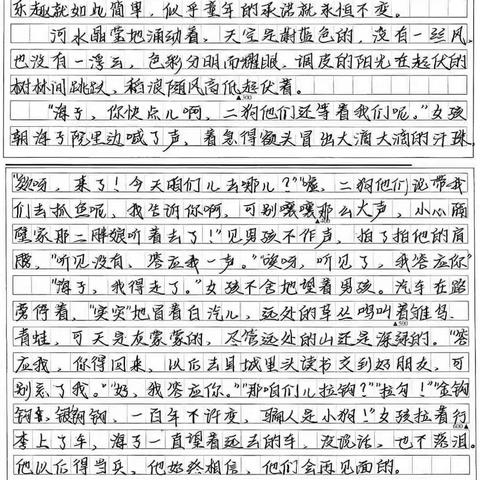 乐趣就如此简单，似乎童年的承诺就永恒不变。
河水晶莹地涌动着，天空是蔚蓝色的，没有一丝风，
也没有一薄云，色彩分明而耀眼，调皮的阳光在起伏的
树林间跳跃，稻浪随风高低起伏着。
▲300
“海子，你快点儿啊，二狗他们还等着我们呢。”女孩
朝海子院里边喊了声，着急得额头冒出大滴大滴的汗珠。
“欸呀，来了！今天咱们儿去哪儿？”“嘘，二狗他们说带我
们去抓鱼呢，我告诉你啊，可别嚷嚷那么大声，小心隔
壁家那二胖娘听着去了！”见男孩不作声，拍了拍他的肩
膀，“听见没有，答应我一声。”“唉呀，听见了，我答应你”
“海子，我得走了。”女孩不舍地望着男孩。汽车在路
旁停着，“突突”地冒着白汽儿，远处的草丛鸣叫着雏鸟、
▲500
青蛙，可天是灰蒙蒙的，尽管远处的山还是深绿的。“答
应我，你得回来，以后去县城里头读书交到好朋友，可
别忘了我。”“好，我答应你。”“那咱们儿拉钩？”“拉勾！”“金钩
钩，银钩钩，一百年不许变，骗人是小狗！”女孩拉着行
李上了车，海子一直望着远去的车，没说话，也不落泪。
600▲
他以后得当兵，他始终相信，他们会再见面的。